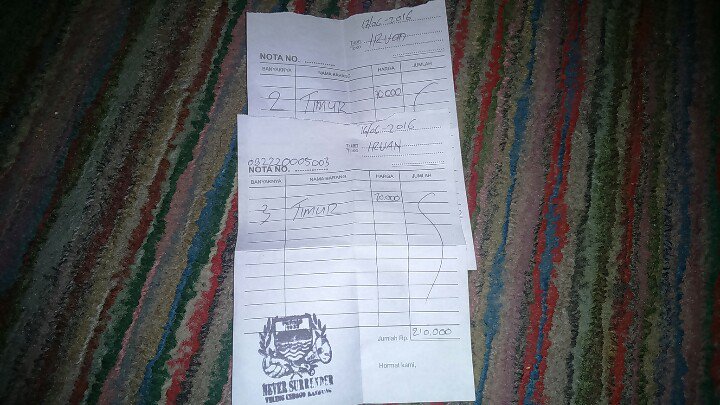 18/06-2016
Tuan
Toko
IRVAN
NOTA NO.
BANYAKNYA NAMA BARANG HARGA JUMLAH
2 TIMUR 70.000
16/06-2016
Tuan
Toko
IRVAN
082220005003
NOTA NO.
BANYAKNYA NAMA BARANG HARGA JUMLAH
3 TIMUR 70.000
Jumlah Rp. 210.000
Hormat kami,
NEVER SURRENDER
VIKING CIBOGO BANDUNG